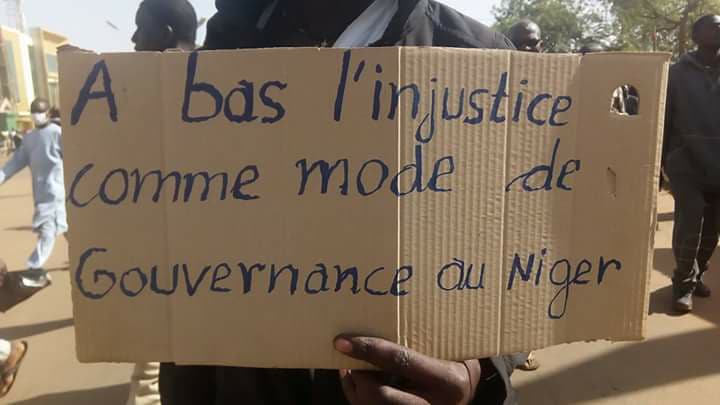 A bas l'injustice
comme mode de
Gouvernance au Niger